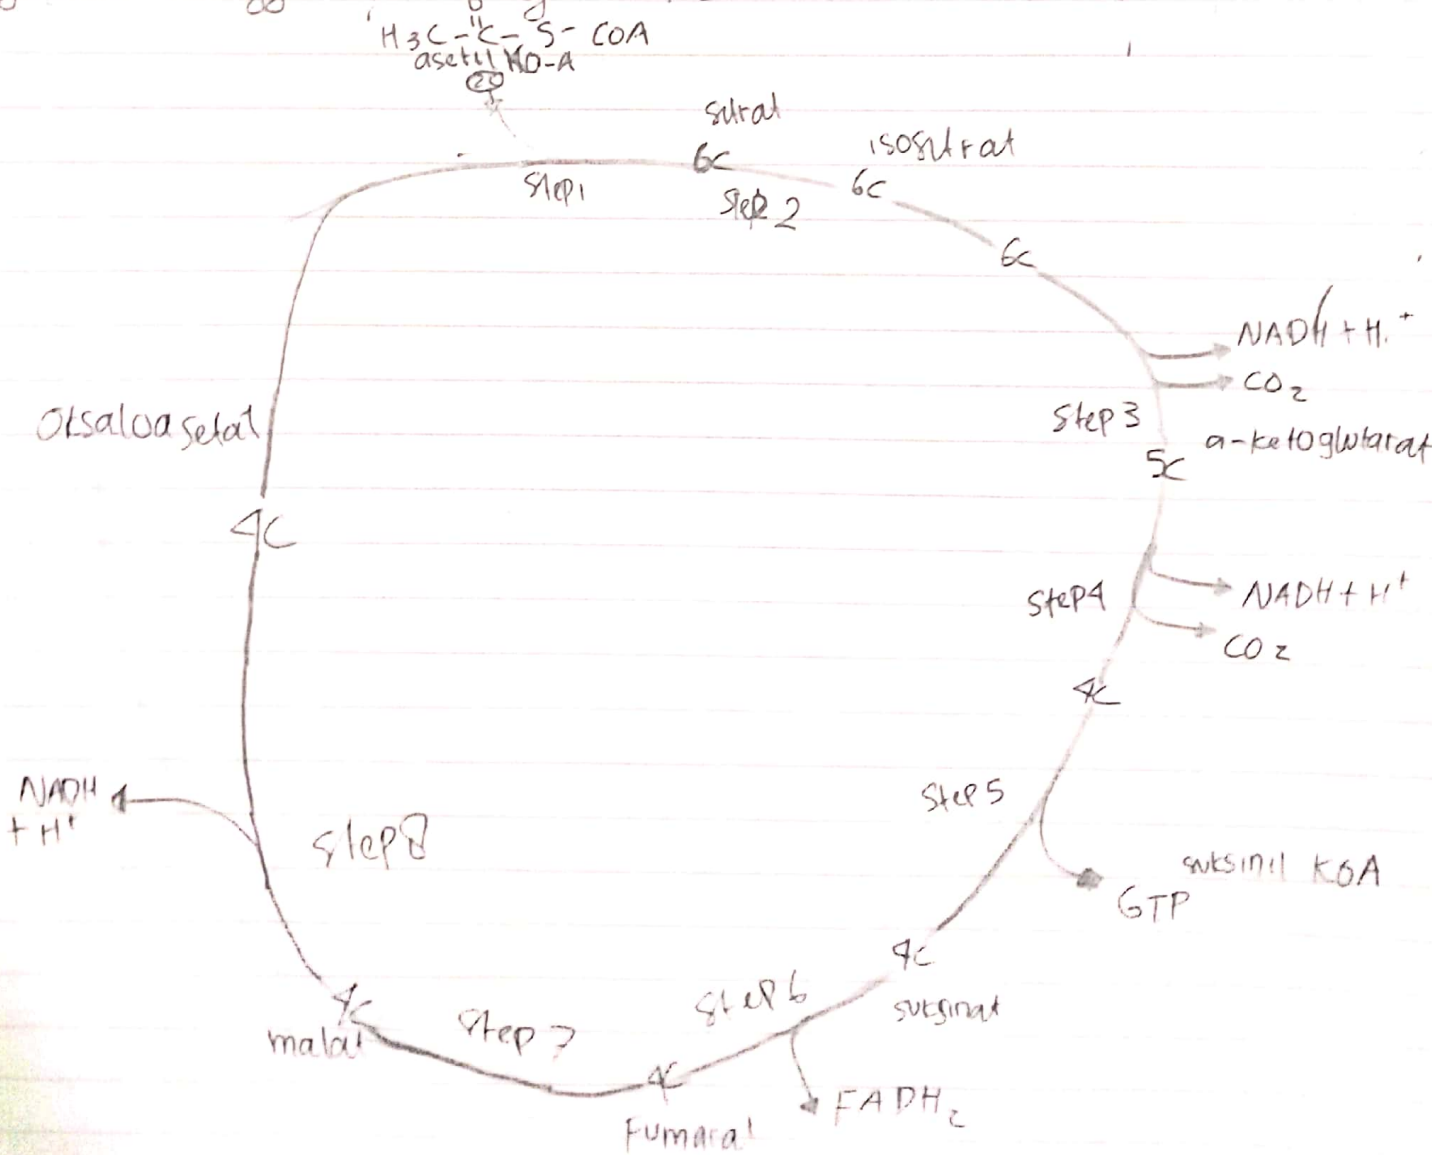 O
H3C-C-S- COA
asetil KO-A
2C
sitrat
6C
isositrat
6C
Step1
Step 2
6C
NADH + H+
CO2
Step 3
a-ketoglutarat
5C
Oksaloasetat
4C
Step4
NADH + H+
CO2
4C
Step 5
NADH
+ H+
Step 8
suksinil KOA
GTP
4C
suksinat
Step 6
4C
malat
Step 7
4C
Fumarat
FADH2